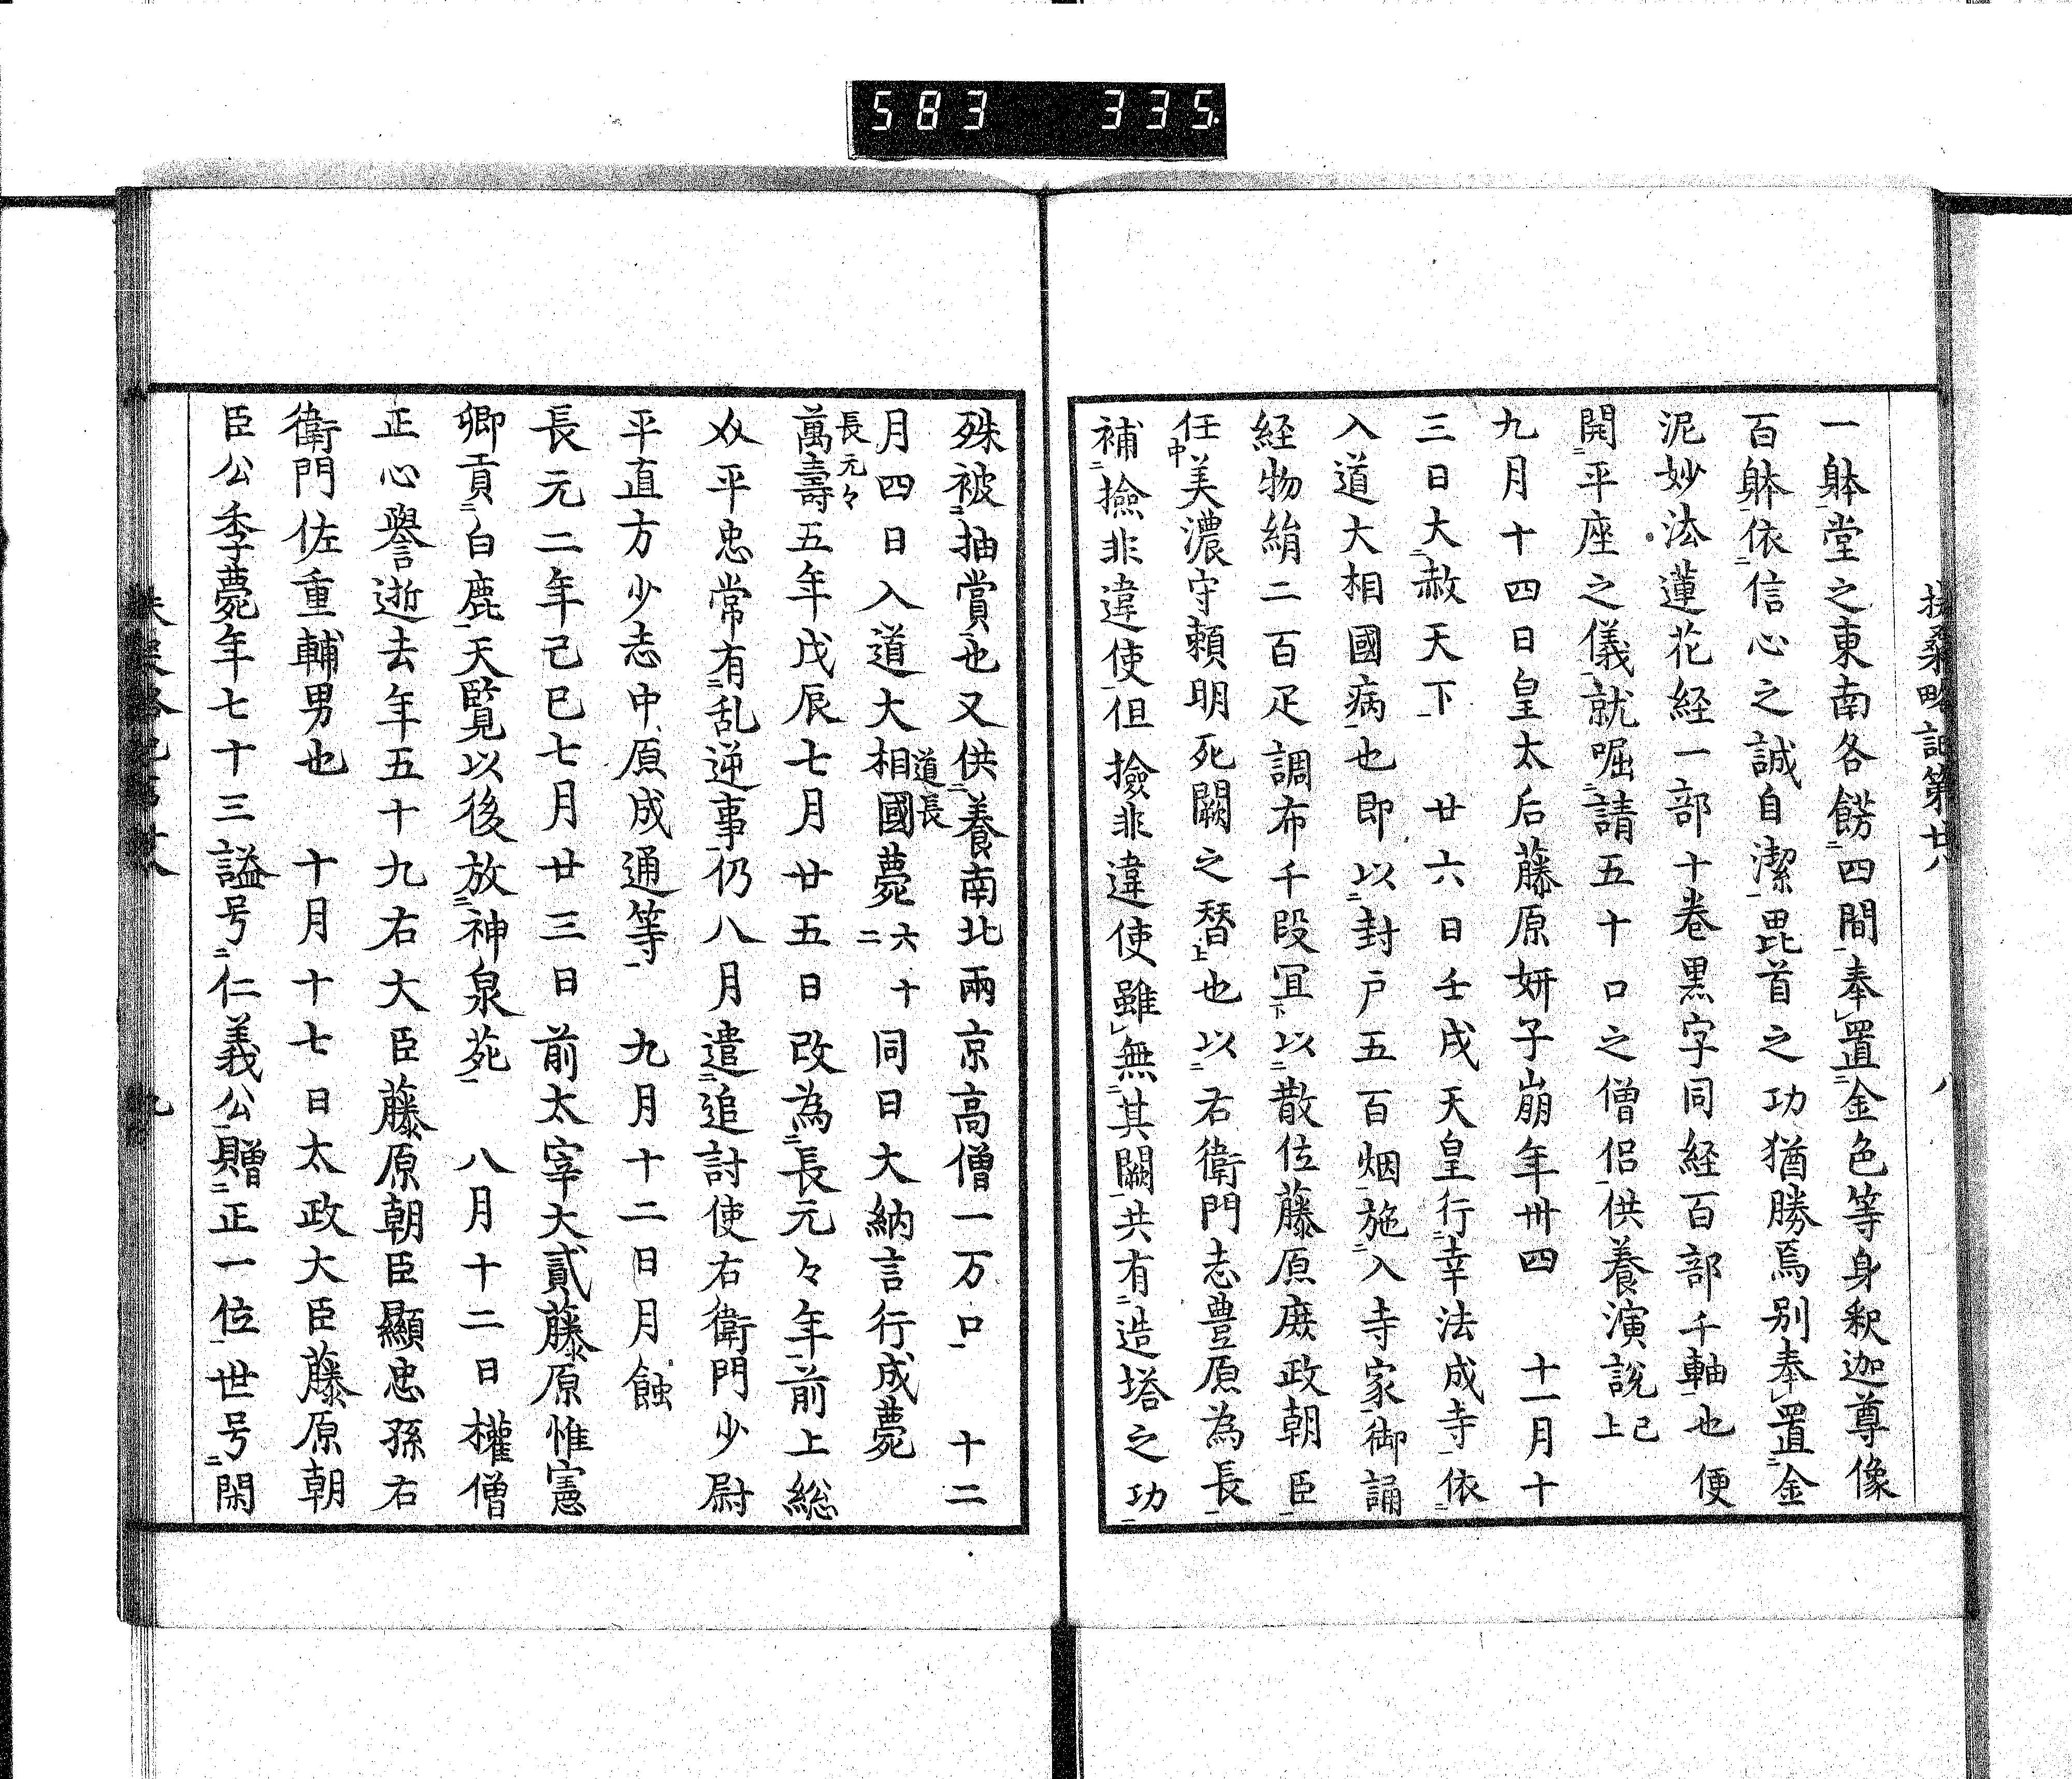 583 335
扶桑略記第廿八 八
一躰堂之東南各餝二四間一奉レ置二金色等身釈迦尊像
百躰一依二信心之誠自潔一毘首之功猶勝焉別奉レ置二金
泥妙法蓮花経一部十巻黒字同経百部千軸一也便
開二平座之儀一就啒二請五十口之僧侶一供養演説已上
九月十四日皇太后藤原妍子崩年卅四 十一月十
三日大二赦天下一 廿六日壬戌天皇行二幸法成寺一依二
入道大相國病一也即以二封戸五百烟一施二入寺家一御誦
経物絹二百疋調布千段冝下以二散位藤原庶政朝臣一
任中美濃守頼明死闕之替上也以二右衛門志豊原為長一
補二撿非違使一但撿非違使雖レ無二其闕一共有二造塔之功一
殊被二抽賞一也又供二養南北兩京高僧一万口一 十二
月四日入道大相國道長薨六十二 同日大納言行成薨
長元々
萬壽五年戊辰七月廿五日改為二長元々年一前上総
介平忠常有二乱逆事一仍八月遣二追討使右衛門少尉
平直方少志中原成通等一 九月十二日月蝕
長元二年己巳七月廿三日前太宰大貳藤原惟憲
卿貢二白鹿一天覧以後放二神泉苑一 八月十二日權僧
正心譽逝去年五十九右大臣藤原朝臣顯忠孫右
衛門佐重輔男也 十月十七日太政大臣藤原朝
臣公季薨年七十三謚号二仁義公一贈二正一位一世号二閑
九